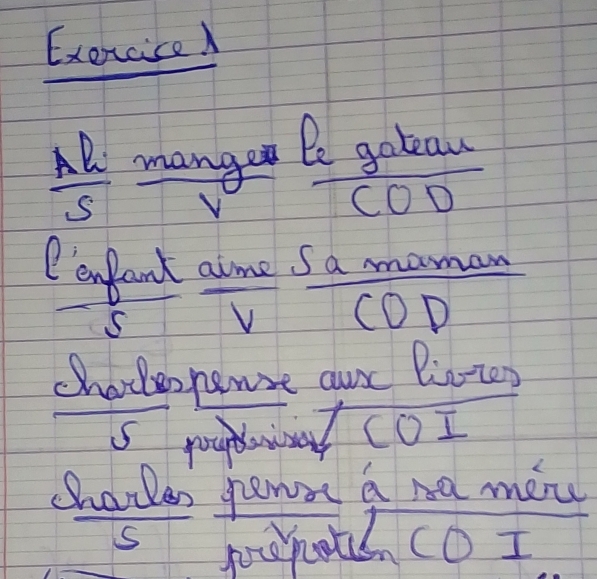 Exercice 1
Ali mange le gateau
S V COD
l'enfant aime sa maman
S V COD
Charles pense aux livres
S COI
Charles pense à sa mère
S V COI